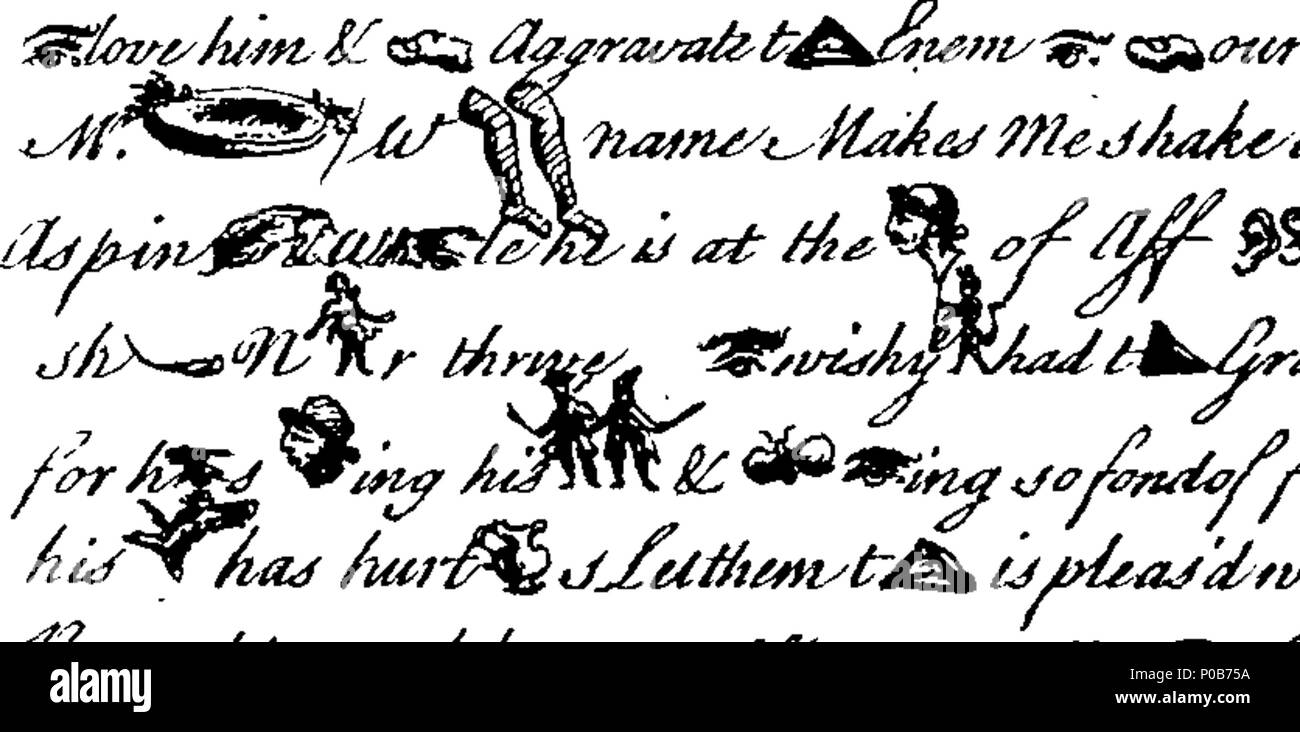 love him & Aggravate t Enem our
Mr. W name Makes Me shake
Aspin le he is at the of Aff
sh N r thrive wishy had t Gra
for h s ing his & ing so fond of f
his has hurt s Let them t is pleas'd w
alamy
Image ID: P0B75A
www.alamy.com